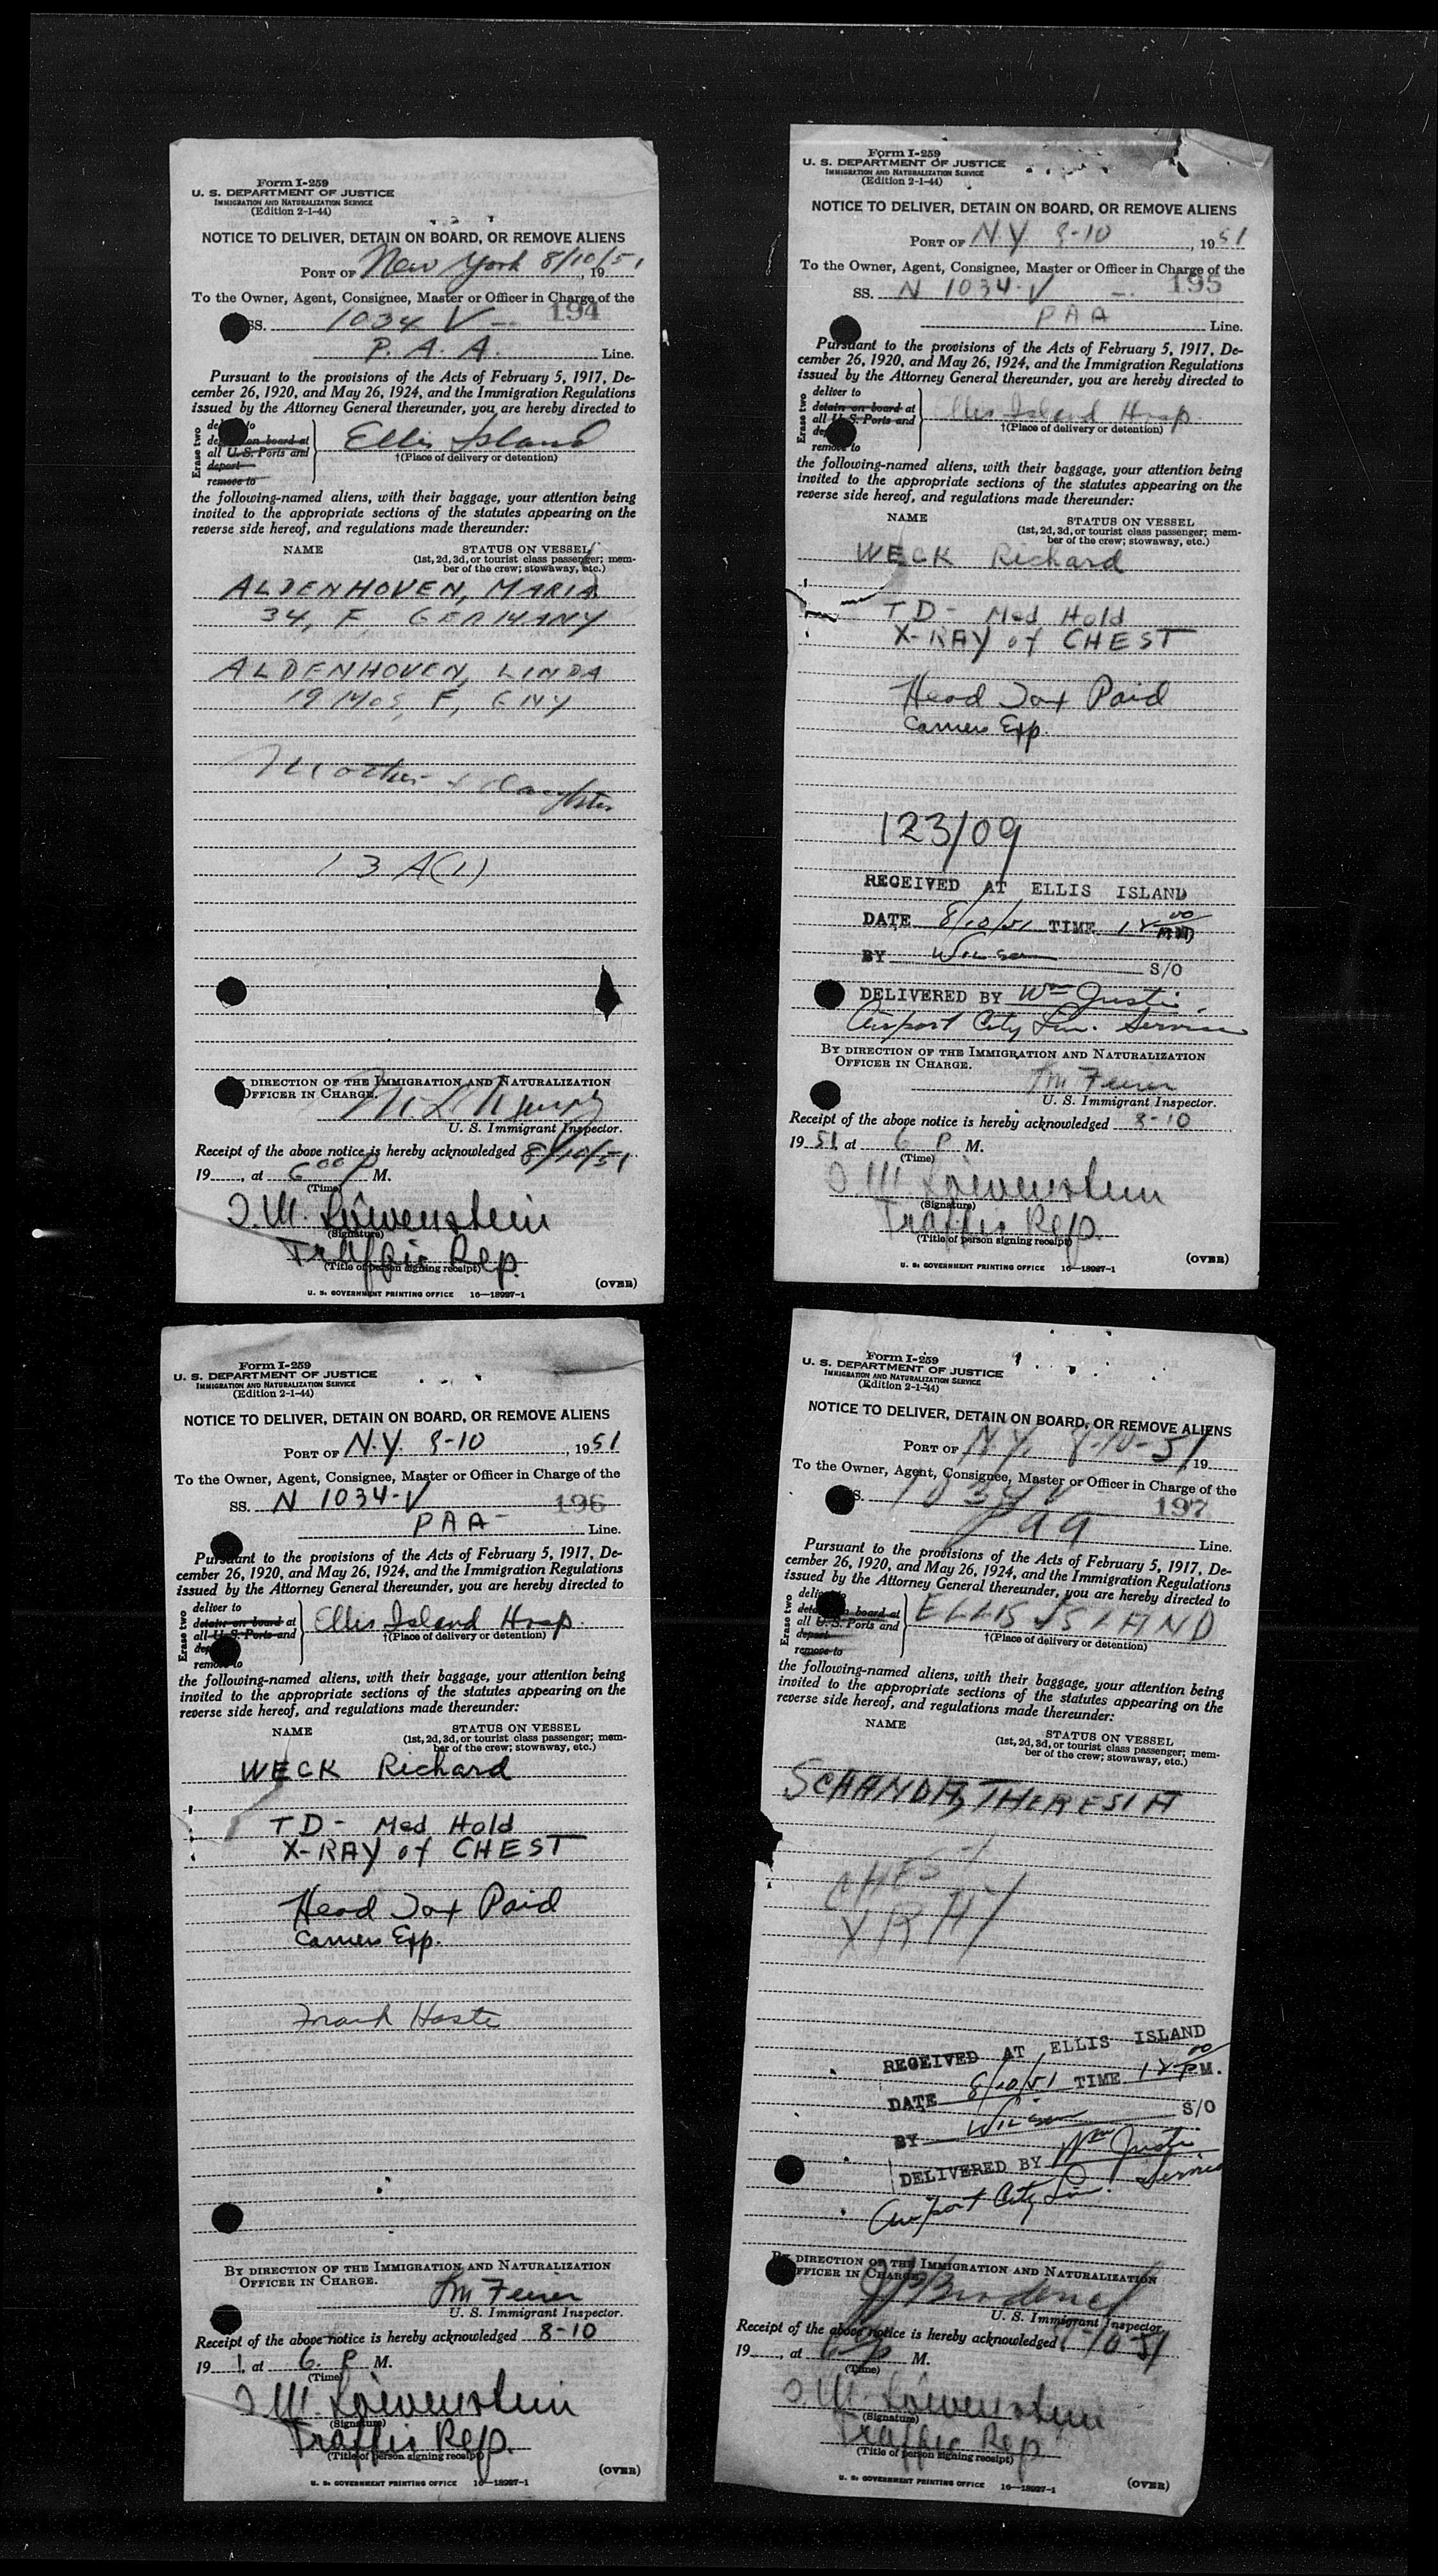 Form I-259
U. S. DEPARTMENT OF JUSTICE
IMMIGRATION AND NATURALIZATION SERVICE
(Edition 2-1-44)
NOTICE TO DELIVER, DETAIN ON BOARD, OR REMOVE ALIENS
PORT OF New York 8/10/51, 19
To the Owner, Agent, Consignee, Master or Officer in Charge of the
SS. 1034 V — 194
P. A. A. Line.
Pursuant to the provisions of the Acts of February 5, 1917, De-
cember 26, 1920, and May 26, 1924, and the Immigration Regulations
issued by the Attorney General thereunder, you are hereby directed to
Erase two
to
on board at
all U. S. Ports and
depart
remove to
Ellis Island
†(Place of delivery or detention)
the following-named aliens, with their baggage, your attention being
invited to the appropriate sections of the statutes appearing on the
reverse side hereof, and regulations made thereunder:
NAME STATUS ON VESSEL
(1st, 2d, 3d, or tourist class passenger; mem-
ber of the crew; stowaway, etc.)
ALDENHOVEN, MARIA
34, F GERMANY
ALDENHOVEN, LINDA
19 MOS, F, GNY
Mother + daughter
13 A(1)
DIRECTION OF THE IMMIGRATION AND NATURALIZATION
OFFICER IN CHARGE.
U. S. Immigrant Inspector.
Receipt of the above notice is hereby acknowledged 8/10/51
19 , at 6 00 P M.
(Time)
J. W. Löwenstein
(Signature)
Traffic Rep.
(Title of person signing receipt)
(OVER)
U. S. GOVERNMENT PRINTING OFFICE 16—18927-1
Form I-259
U. S. DEPARTMENT OF JUSTICE
IMMIGRATION AND NATURALIZATION SERVICE
(Edition 2-1-44)
NOTICE TO DELIVER, DETAIN ON BOARD, OR REMOVE ALIENS
PORT OF N.Y. 8-10, 1951
To the Owner, Agent, Consignee, Master or Officer in Charge of the
SS. N 1034-V — 195
PAA Line.
Pursuant to the provisions of the Acts of February 5, 1917, De-
cember 26, 1920, and May 26, 1924, and the Immigration Regulations
issued by the Attorney General thereunder, you are hereby directed to
Erase two
deliver to
detain on board at
all U. S. Ports and
remove to
Ellis Island Hosp.
†(Place of delivery or detention)
the following-named aliens, with their baggage, your attention being
invited to the appropriate sections of the statutes appearing on the
reverse side hereof, and regulations made thereunder:
NAME STATUS ON VESSEL
(1st, 2d, 3d, or tourist class passenger; mem-
ber of the crew; stowaway, etc.)
WECK Richard
TD - Med Hold
X-RAY of CHEST
Head Tax Paid
Carriers Exp.
123/09
RECEIVED AT ELLIS ISLAND
DATE 8/10/51 TIME 12 00
BY Wilson S/O
DELIVERED BY Wm Justi
Airport City Lim. Service
BY DIRECTION OF THE IMMIGRATION AND NATURALIZATION
OFFICER IN CHARGE.
U. S. Immigrant Inspector.
Receipt of the above notice is hereby acknowledged 8-10
1951, at 6 P M.
(Time)
J W Löwenstein
(Signature)
Traffic Rep.
(Title of person signing receipt)
(OVER)
U. S. GOVERNMENT PRINTING OFFICE 16—18927-1
Form I-259
U. S. DEPARTMENT OF JUSTICE
IMMIGRATION AND NATURALIZATION SERVICE
(Edition 2-1-44)
NOTICE TO DELIVER, DETAIN ON BOARD, OR REMOVE ALIENS
PORT OF N.Y. 8-10, 1951
To the Owner, Agent, Consignee, Master or Officer in Charge of the
SS. N 1034-V 196
PAA Line.
Pursuant to the provisions of the Acts of February 5, 1917, De-
cember 26, 1920, and May 26, 1924, and the Immigration Regulations
issued by the Attorney General thereunder, you are hereby directed to
Erase two
deliver to
detain on board at
all U. S. Ports and
remove to
Ellis Island Hosp.
†(Place of delivery or detention)
the following-named aliens, with their baggage, your attention being
invited to the appropriate sections of the statutes appearing on the
reverse side hereof, and regulations made thereunder:
NAME STATUS ON VESSEL
(1st, 2d, 3d, or tourist class passenger; mem-
ber of the crew; stowaway, etc.)
WECK Richard
TD - Med Hold
X-RAY of CHEST
Head Tax Paid
Carriers Exp.
Frank Haste
BY DIRECTION OF THE IMMIGRATION AND NATURALIZATION
OFFICER IN CHARGE.
U. S. Immigrant Inspector.
Receipt of the above notice is hereby acknowledged 8-10
19 1, at 6 P M.
(Time)
J W Löwenstein
(Signature)
Traffic Rep.
(Title of person signing receipt)
(OVER)
U. S. GOVERNMENT PRINTING OFFICE 16—18927-1
Form I-259
U. S. DEPARTMENT OF JUSTICE
IMMIGRATION AND NATURALIZATION SERVICE
(Edition 2-1-44)
NOTICE TO DELIVER, DETAIN ON BOARD, OR REMOVE ALIENS
PORT OF N.Y. 8-10-51, 19
To the Owner, Agent, Consignee, Master or Officer in Charge of the
SS. 1034 V 197
Paa Line.
Pursuant to the provisions of the Acts of February 5, 1917, De-
cember 26, 1920, and May 26, 1924, and the Immigration Regulations
issued by the Attorney General thereunder, you are hereby directed to
Erase two
on board at
all U. S. Ports and
depart
remove to
ELLIS ISLAND
†(Place of delivery or detention)
the following-named aliens, with their baggage, your attention being
invited to the appropriate sections of the statutes appearing on the
reverse side hereof, and regulations made thereunder:
NAME STATUS ON VESSEL
(1st, 2d, 3d, or tourist class passenger; mem-
ber of the crew; stowaway, etc.)
SCHANDA, THERESIA
CHEST
XRAY
RECEIVED AT ELLIS ISLAND
DATE 8/10/51 TIME 12 00 P.M.
BY Wilson S/O
DELIVERED BY Wm Justi
Airport City Lim. Service
BY DIRECTION OF THE IMMIGRATION AND NATURALIZATION
OFFICER IN CHARGE
U. S. Immigrant Inspector.
Receipt of the above notice is hereby acknowledged 10-51
19 , at 6 P M.
(Time)
J W Löwenstein
(Signature)
Traffic Rep
(Title of person signing receipt)
(OVER)
U. S. GOVERNMENT PRINTING OFFICE 16—18927-1